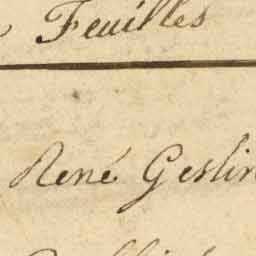 Feuilles
René Geslin